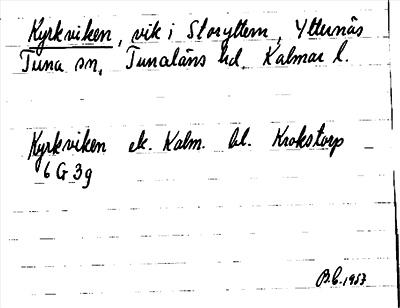 Kyrkviken, vik i Storyttern, Ytternäs
Tuna sn, Tunaläns hd, Kalmar l.
Kyrkviken ek. Kalm. bl. Krokstorp
6 G 3g
B.C. 1953